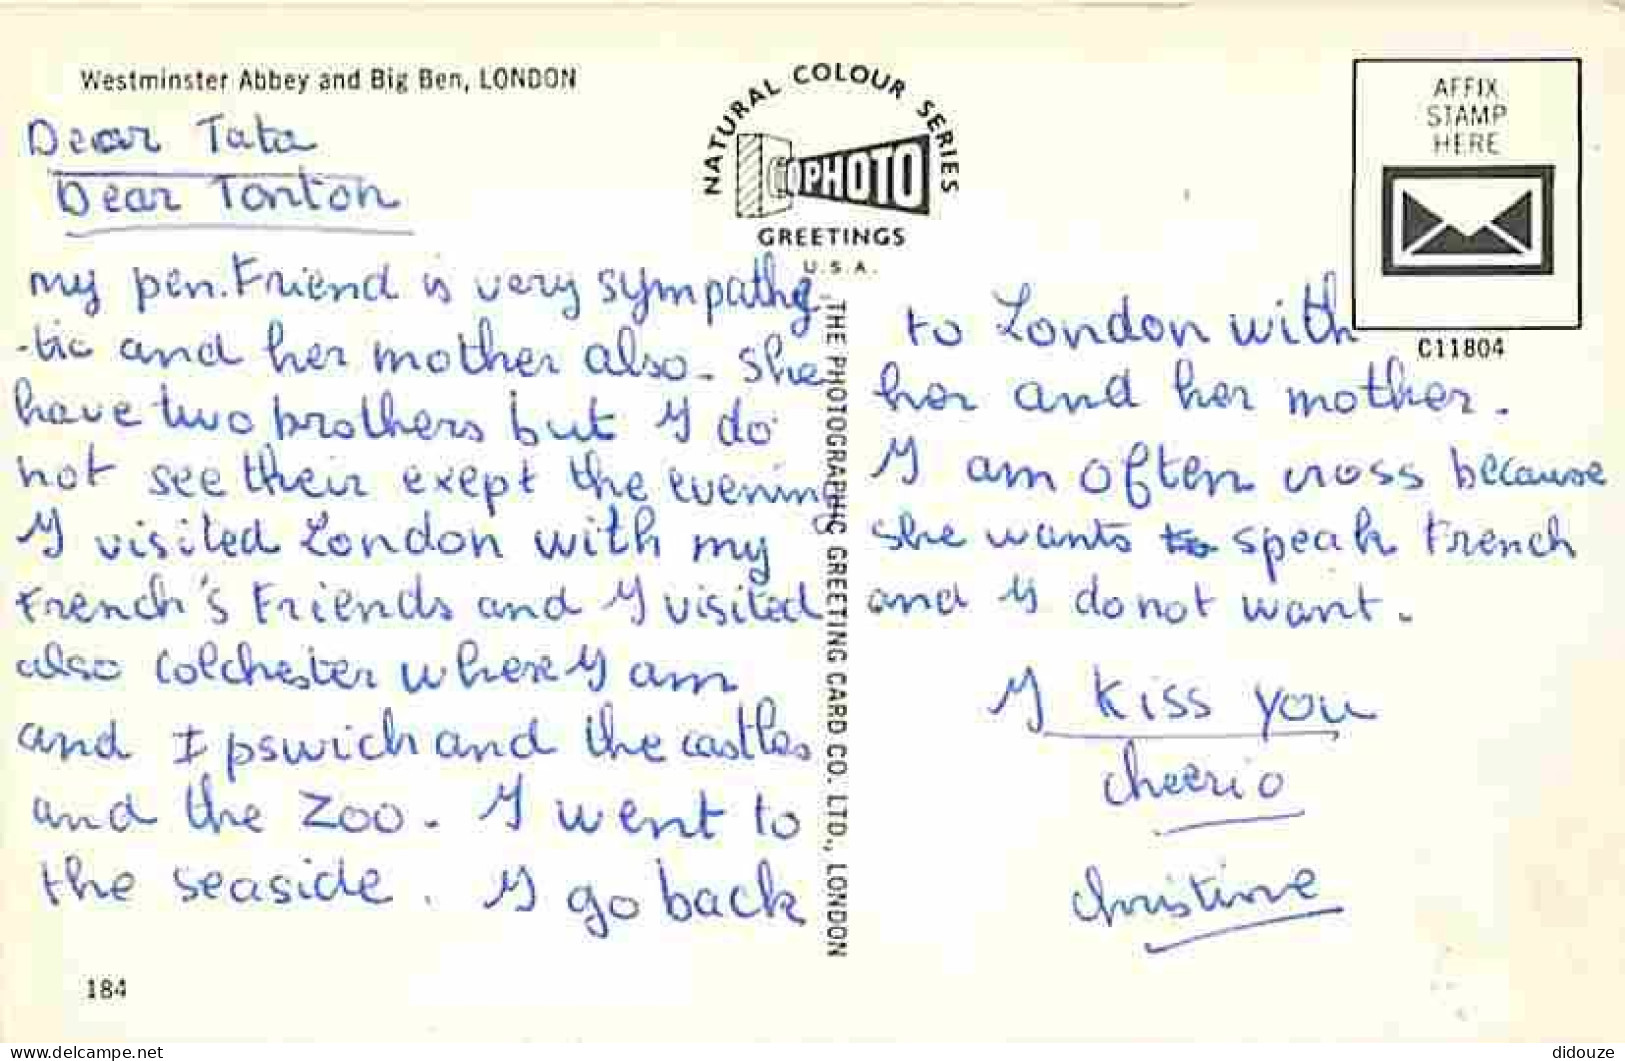 Westminster Abbey and Big Ben, LONDON
Dear Tata
Dear Tonton
my pen.Friend is very sympathe
-tic and her mother also. She
have two brothers but I do
not see their exept the evening
I visited London with my
French's Friends and I visited
also Colchester where I am
and Ipswich and the castles
and the Zoo. I went to
the seaside. I go back
184
NATURAL COLOUR SERIES
PHOTO
GREETINGS
U.S.A.
THE PHOTOGRAPHIC GREETING CARD CO. LTD., LONDON
AFFIX
STAMP
HERE
C11804
to London with
her and her mother.
I am often cross because
she wants to speak French
and I do not want.
I kiss you
cheerio
christine
delcampe.net
didouze